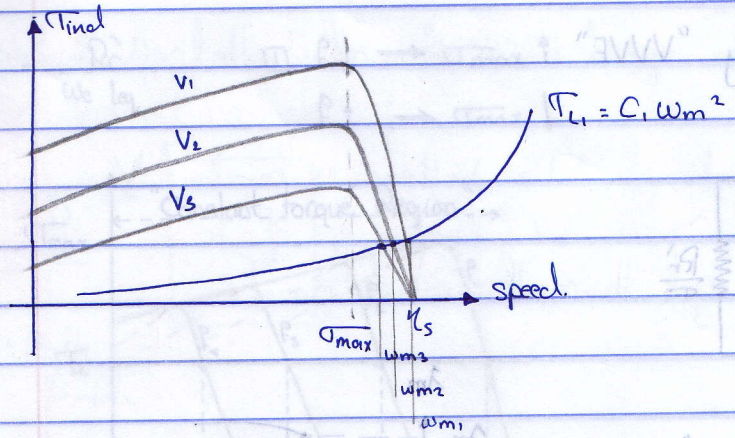 τind
V1
V2
V3
τL1 = C1 ωm²
speed.
ηs
τmax
ωm3
ωm2
ωm1